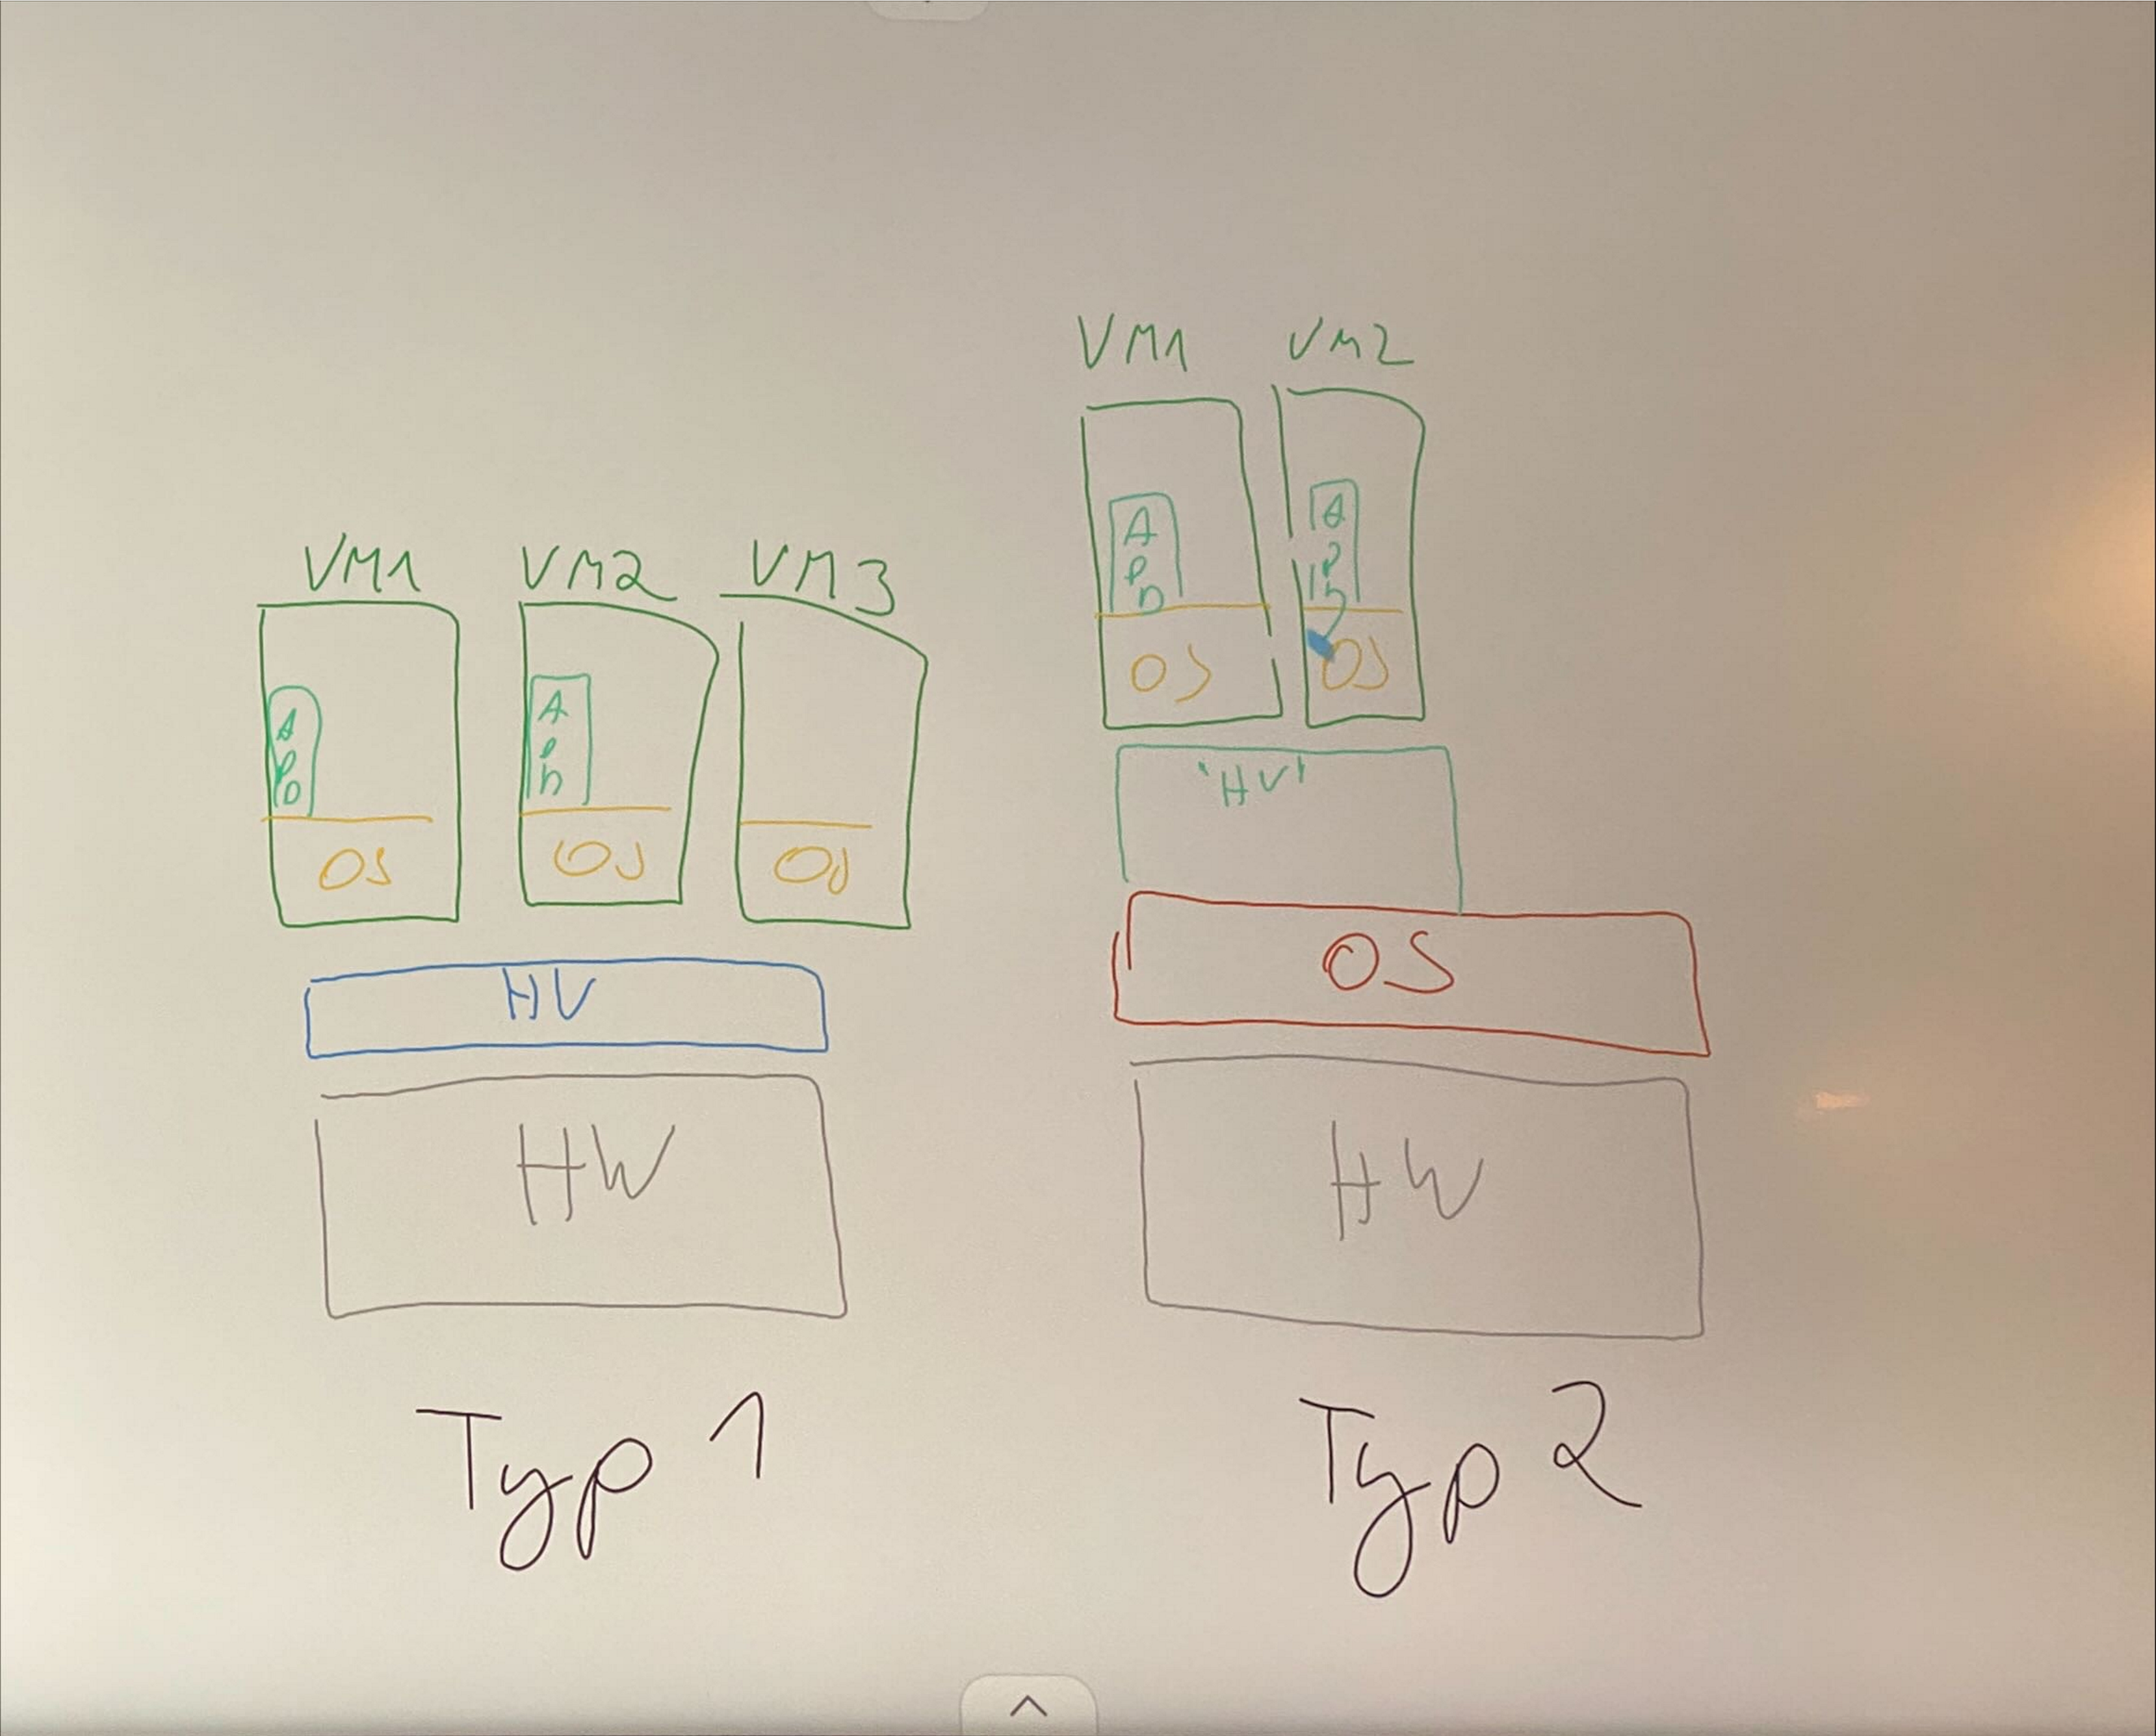 VM1 VM2 VM3
A
P
P
A
P
P
OS OS OS
HV
HW
Typ 1
VM1 VM2
A
P
P
A
P
P
OS OS
'HV'
OS
HW
Typ 2